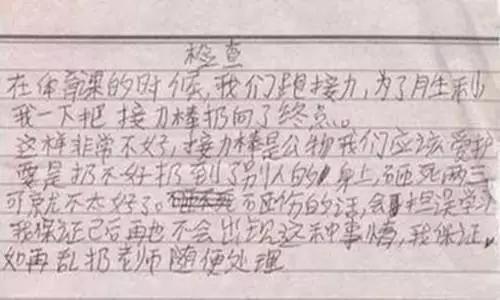 检查
在体育课的时候,我们跑接力,为了月生利
我一下把 接力棒扔向了终点。
这样非常不好,接力棒是公物我们应该爱护
要是扔不好扔到了别人的身上,砸死两三
可就不太好了。砸伤的话,会担误学习
我保证已后再也不会出现这种事情,我保证,
如再乱扔老师随便处理